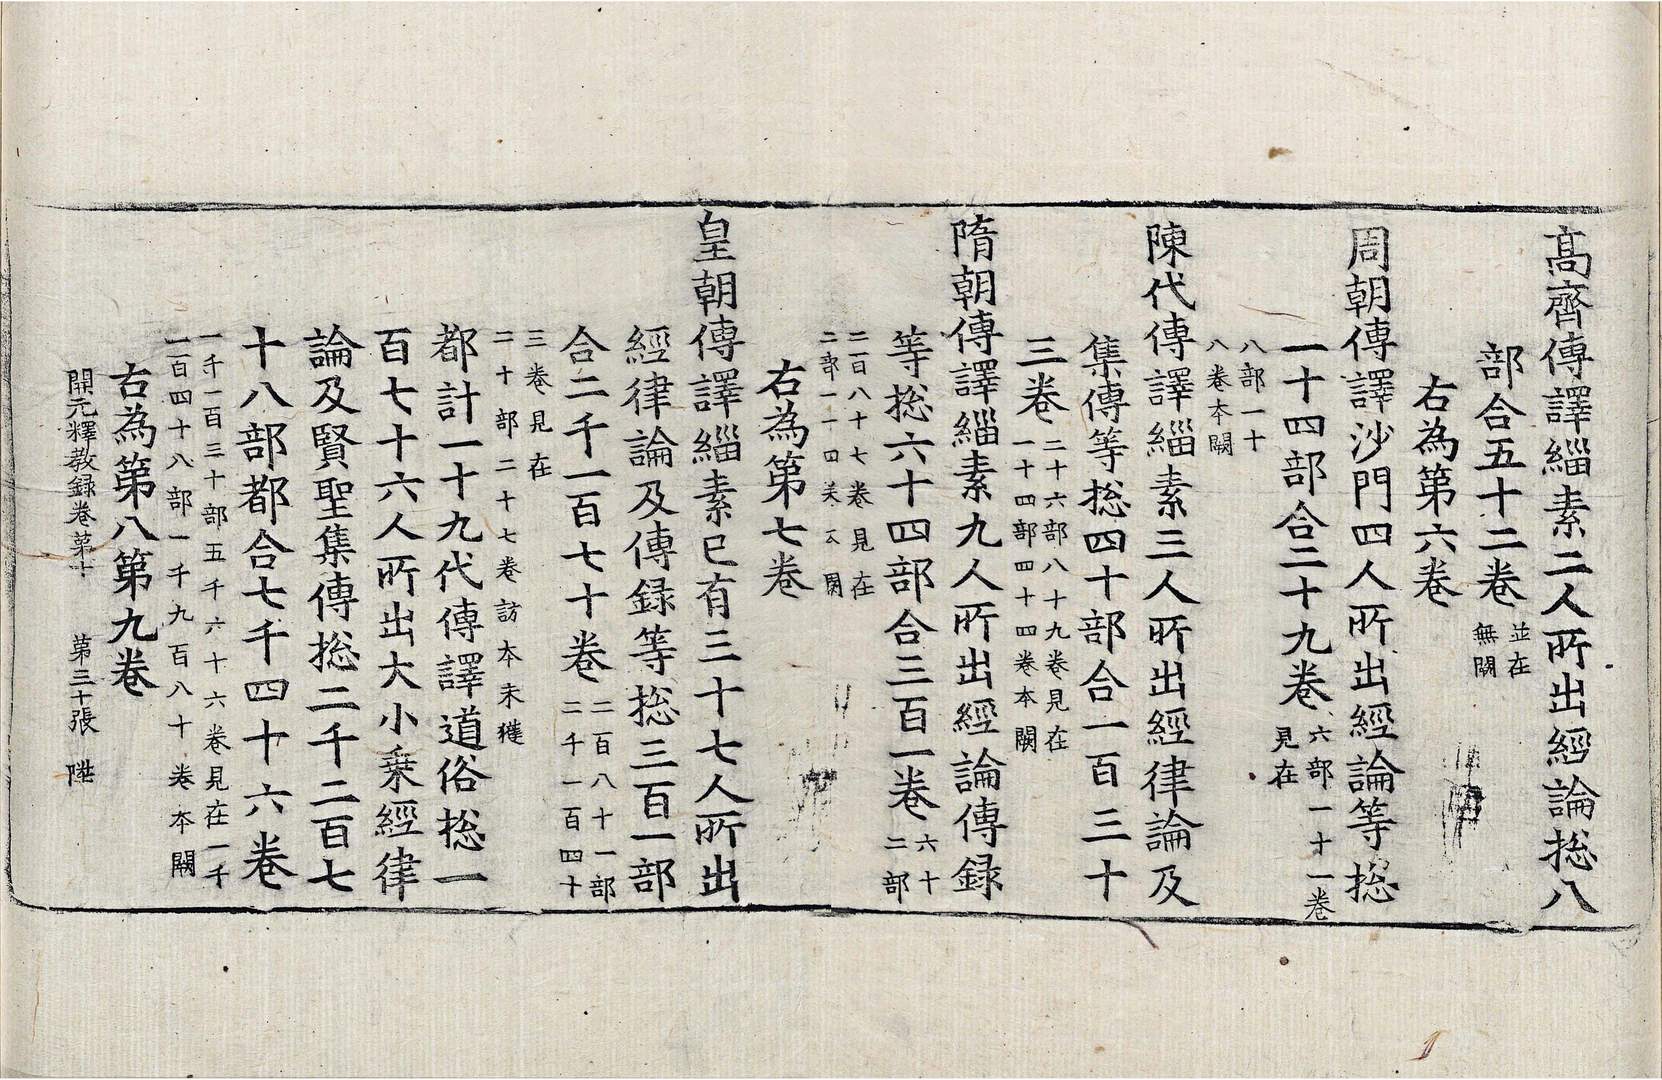 髙齊傳譯緇素二人所出經論捴八
部合五十二卷
並在
無闕
右為第六卷
周朝傳譯沙門四人所出經論等捴
一十四部合二十九卷
六部一十一卷
見在
八部一十
八卷本闕
陳代傳譯緇素三人所出經律論及
集傳等捴四十部合一百三十
三卷
二十六部八十九卷見在
一十四部四十四卷本闕
隋朝傳譯緇素九人所出經論傳録
等捴六十四部合三百一卷
六十
二部
二百八十七卷見在
二部一十四闕
右為第七卷
皇朝傳譯緇素已有三十七人所出
經律論及傳録等捴三百一部
合二千一百七十卷
二百八十一部
二千一百四十
三卷見在
二十部二十七卷訪本未獲
都計一十九代傳譯道俗捴一
百七十六人所出大小乗經律
論及賢聖集傳捴二千二百七
十八部都合七千四十六卷
一千一百三十部五千六十六卷見在一千
一百四十八部一千九百八十卷本闕
右為第八第九卷
開元釋教録卷苐十 苐三十張